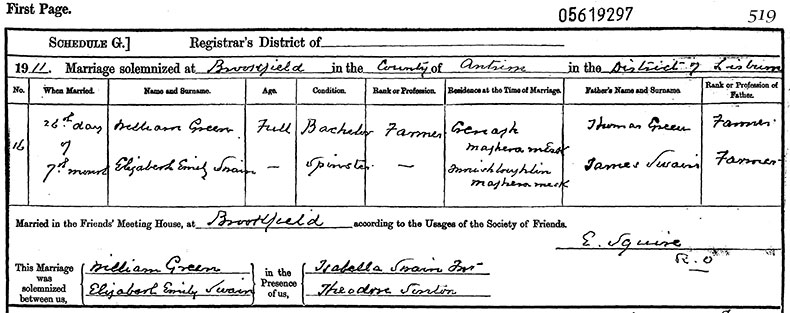 First Page. 05619297 519
SCHEDULE G.] Registrar's District of
1911. Marriage solemnized at Brookfield in the County of Antrim in the District of Lisburn
No. When Married. Name and Surname. Age. Condition. Rank or Profession. Residence at the Time of Marriage. Father's Name and Surname. Rank or Profession of Father.
16 26th day William Green Full Bachelor Farmer Magheramesk Thomas Green Farmer
of
7th month Elizabeth Emily Swain — Spinster — Innishloughlin Magheramesk James Swain Farmer
Married in the Friends' Meeting House, at Brookfield according to the Usages of the Society of Friends.
E. Squire
R.O
This Marriage was solemnized between us, William Green in the Presence of us, Isabella Swain
Elizabeth Emily Swain Theodore Sinton